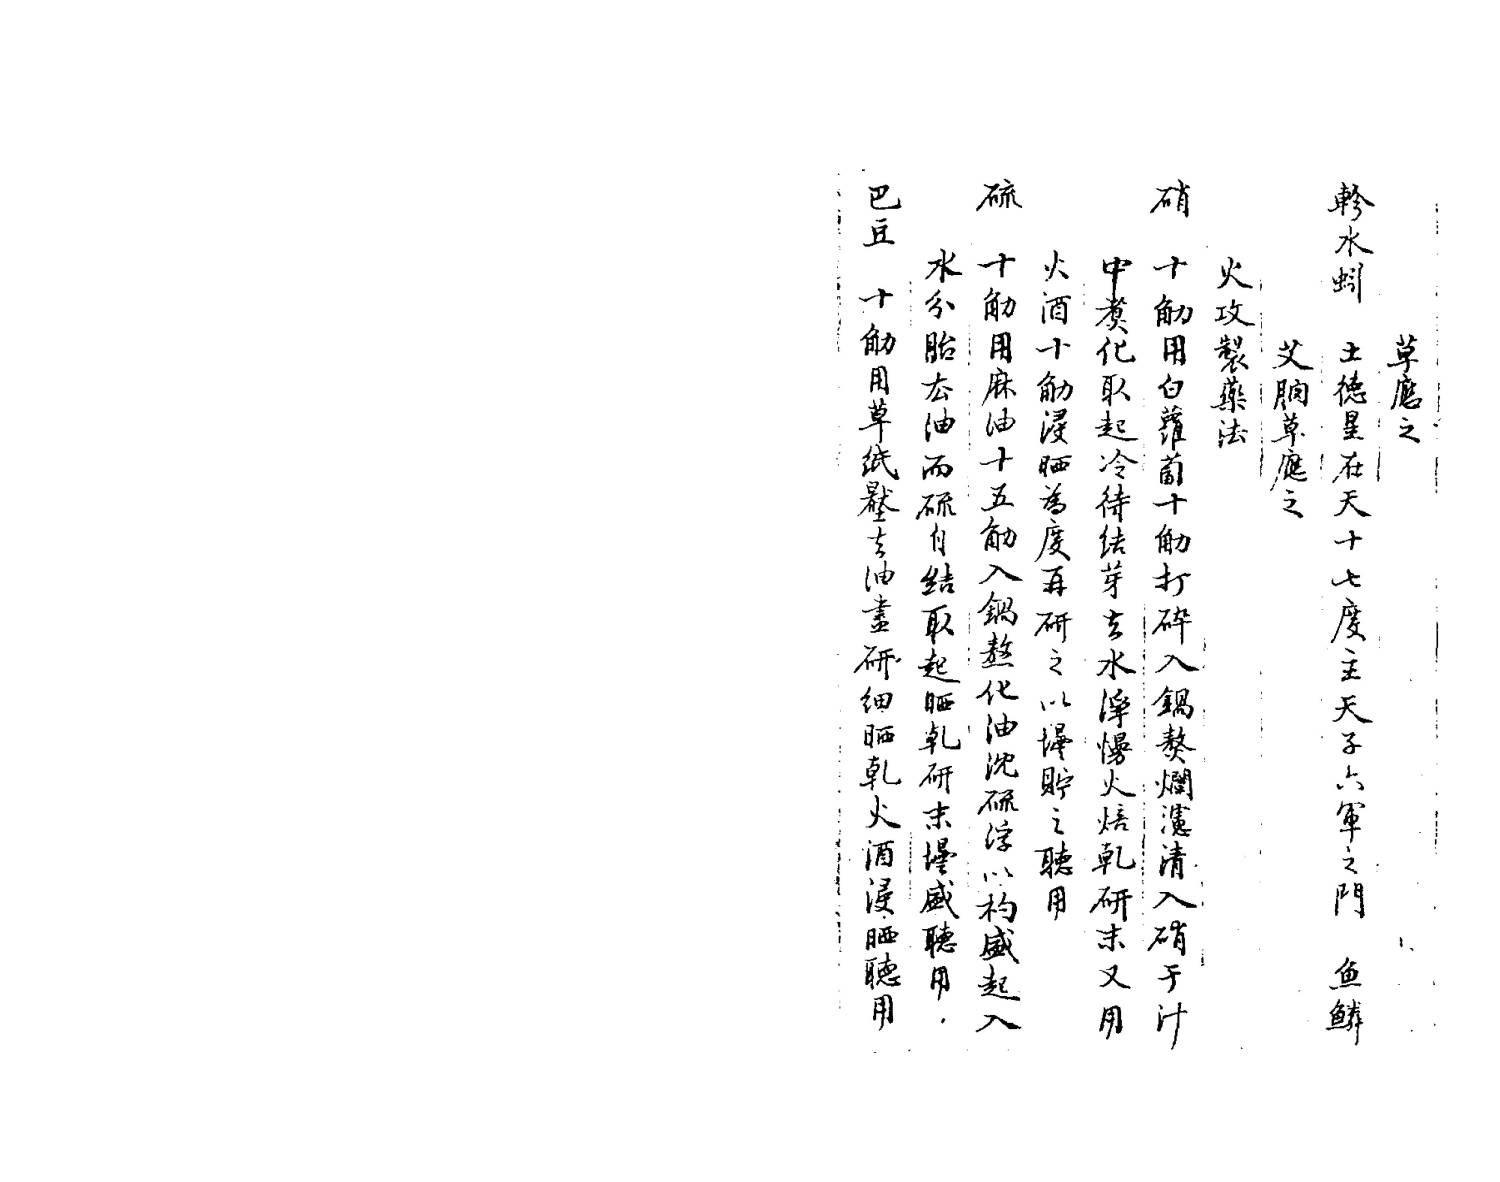 草應之
軫水蚓　土德星在天十七度主天子六軍之門　魚鱗
艾胸草應之
火攻製藥法
硝　十觔用白蘿蔔十觔打碎入鍋熬爛濾清入硝于汁
中煮化取起冷待結芽去水滓慢火焙乾研末又用
火酒十觔浸晒為度再研之以壜貯之聽用
硫　十觔用麻油十五觔入鍋熬化油沈硫浮以杓盛起入
水分胎去油而硫自結取起晒乾研末壜盛聽用
巴豆　十觔用草紙壓去油盡研細晒乾火酒浸晒聽用